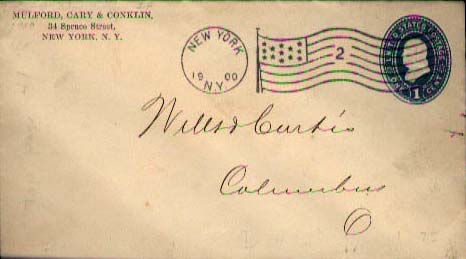 MULFORD, CARY & CONKLIN,
34 Spruce Street,
NEW YORK, N. Y.
NEW YORK
19 00
N.Y.
2
UNITED STATES POSTAGE
ONE 1 CENT
Wells & Curtis
Columbus
O